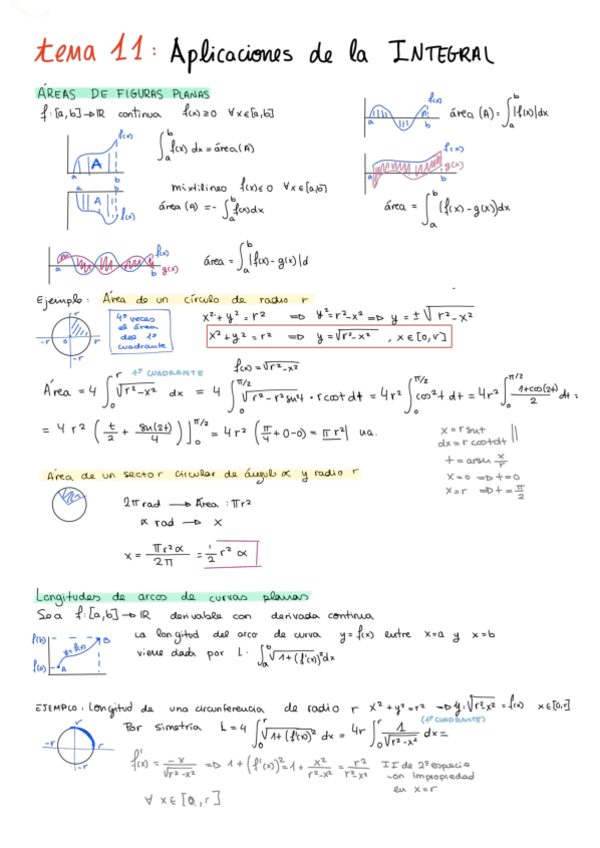 tema 11: Aplicaciones de la INTEGRAL
ÁREAS DE FIGURAS PLANAS
f: [a,b] → ℝ continua f(x) ≥ 0 ∀x ∈ [a,b]
f(x)
A
a b
∫_a^b f(x) dx = área (A)
f(x)
a b
área (A) = ∫_a^b |f(x)| dx
mixtilineo f(x) ≤ 0 ∀x ∈ [a,b]
a b
A
f(x)
área (A) = - ∫_a^b f(x) dx
f(x)
g(x)
a b
área = ∫_a^b (f(x) - g(x)) dx
f(x)
a b g(x)
área = ∫_a^b |f(x) - g(x)| d
Ejemplo: Área de un círculo de radio r
r
-r r
-r
4º veces
el área
del 1º
cuadrante
x² + y² = r² ⇒ y² = r² - x² ⇒ y = ± √(r² - x²)
x² + y² = r² ⇒ y = √(r² - x²) , x ∈ [0,r]
f(x) = √(r² - x²)
1º CUADRANTE
Área = 4 ∫_0^r √(r² - x²) dx = 4 ∫_0^{π/2} √(r² - r² sen² t) · r cos t dt = 4r² ∫_0^{π/2} cos² t dt = 4r² ∫_0^{π/2} (1 + cos(2t))/2 dt =
= 4 r² (t/2 + sen(2t)/4) ]_0^{π/2} = 4r² (π/4 + 0 - 0) = π r² ua.
x = r sen t
dx = r cos t dt
t = arsen x/r
x = 0 ⇒ t = 0
x = r ⇒ t = π/2
Área de un sector circular de ángulo α y radio r
2π rad → Área : πr²
α rad → x
x = πr²α / 2π = 1/2 r² α
Longitudes de arcos de curvas planas
Sea f: [a,b] → ℝ derivable con derivada continua
f(b)
f(a)
y = f(x)
A
B
La longitud del arco de curva y = f(x) entre x = a y x = b
viene dada por L = ∫_a^b √(1 + (f'(x))²) dx
EJEMPLO: Longitud de una circunferencia de radio r x² + y² = r² → y = √(r² - x²) = f(x) x ∈ [0,r]
(1º CUADRANTE)
r
-r r
-r
Por simetría L = 4 ∫_0^r √(1 + (f'(x))²) dx = 4r ∫_0^r 1/√(r² - x²) dx =
f'(x) = -x/√(r² - x²) ⇒ 1 + (f'(x))² = 1 + x²/(r² - x²) = r²/(r² - x²)
∀ x ∈ [0, r]
II de 2ª especie
con impropiedad
en x = r